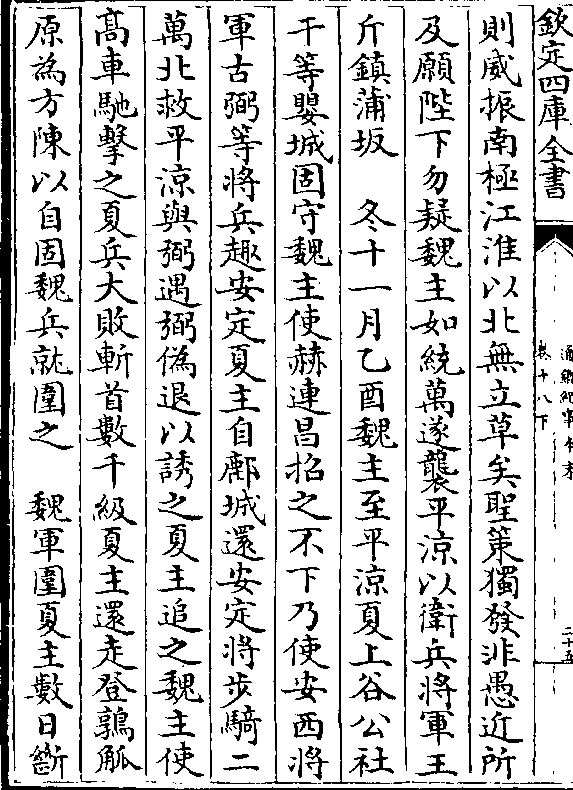 欽定四庫全書
則威振南極江淮以北無立草矣聖策獨發非愚近所
及願陛下勿疑魏主如統萬遂襲平涼以衛兵將軍王
斤鎮蒲坂　冬十一月乙酉魏主至平涼夏上谷公社
干等嬰城固守魏主使赫連昌招之不下乃使安西將
軍古弼等將兵趣安定夏主自鄜城還安定將步騎二
萬北救平涼與弼遇弼偽退以誘之夏主追之魏主使
高車馳擊之夏兵大敗斬首數千級夏主還走登鶉觚
原為方陳以自固魏兵就圍之　魏軍圍夏主數日斷
通鑑紀事本末
卷十八下
二十五